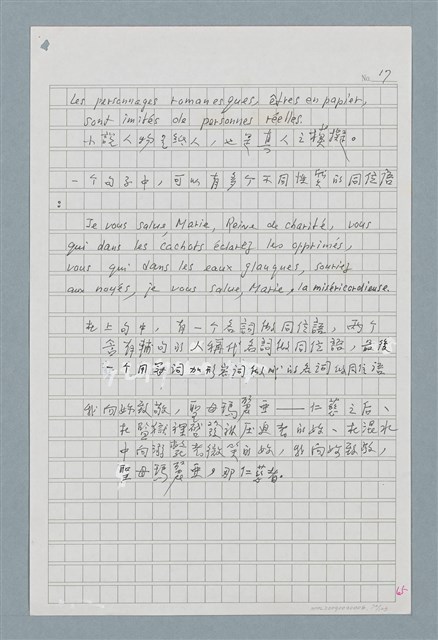 No. 17
Les personnages romanesques, êtres en papier,
sont imités de personnes réelles.
小說人物是紙人，也是真人之模擬。
一个句子中，可以有多个不同性質的同位語
：
Je vous salue, Marie, Reine de charité, vous
qui dans les cachots éclairez les opprimés,
vous qui dans les eaux glauques, souriez
aux noyés, je vous salue, Marie, la miséricordieuse.
在上句中，有一个名詞做同位語，兩个
含有補句的人稱代名詞做同位語，最後
一个用冠詞加形容詞做成的名詞做同位語
我向妳致敬，聖母瑪麗亞——仁慈之后、
在監獄裡啓發被壓迫者的妳、在混水
中向溺斃者微笑的妳，我向妳致敬，
聖母瑪麗亞，那仁慈者。
65